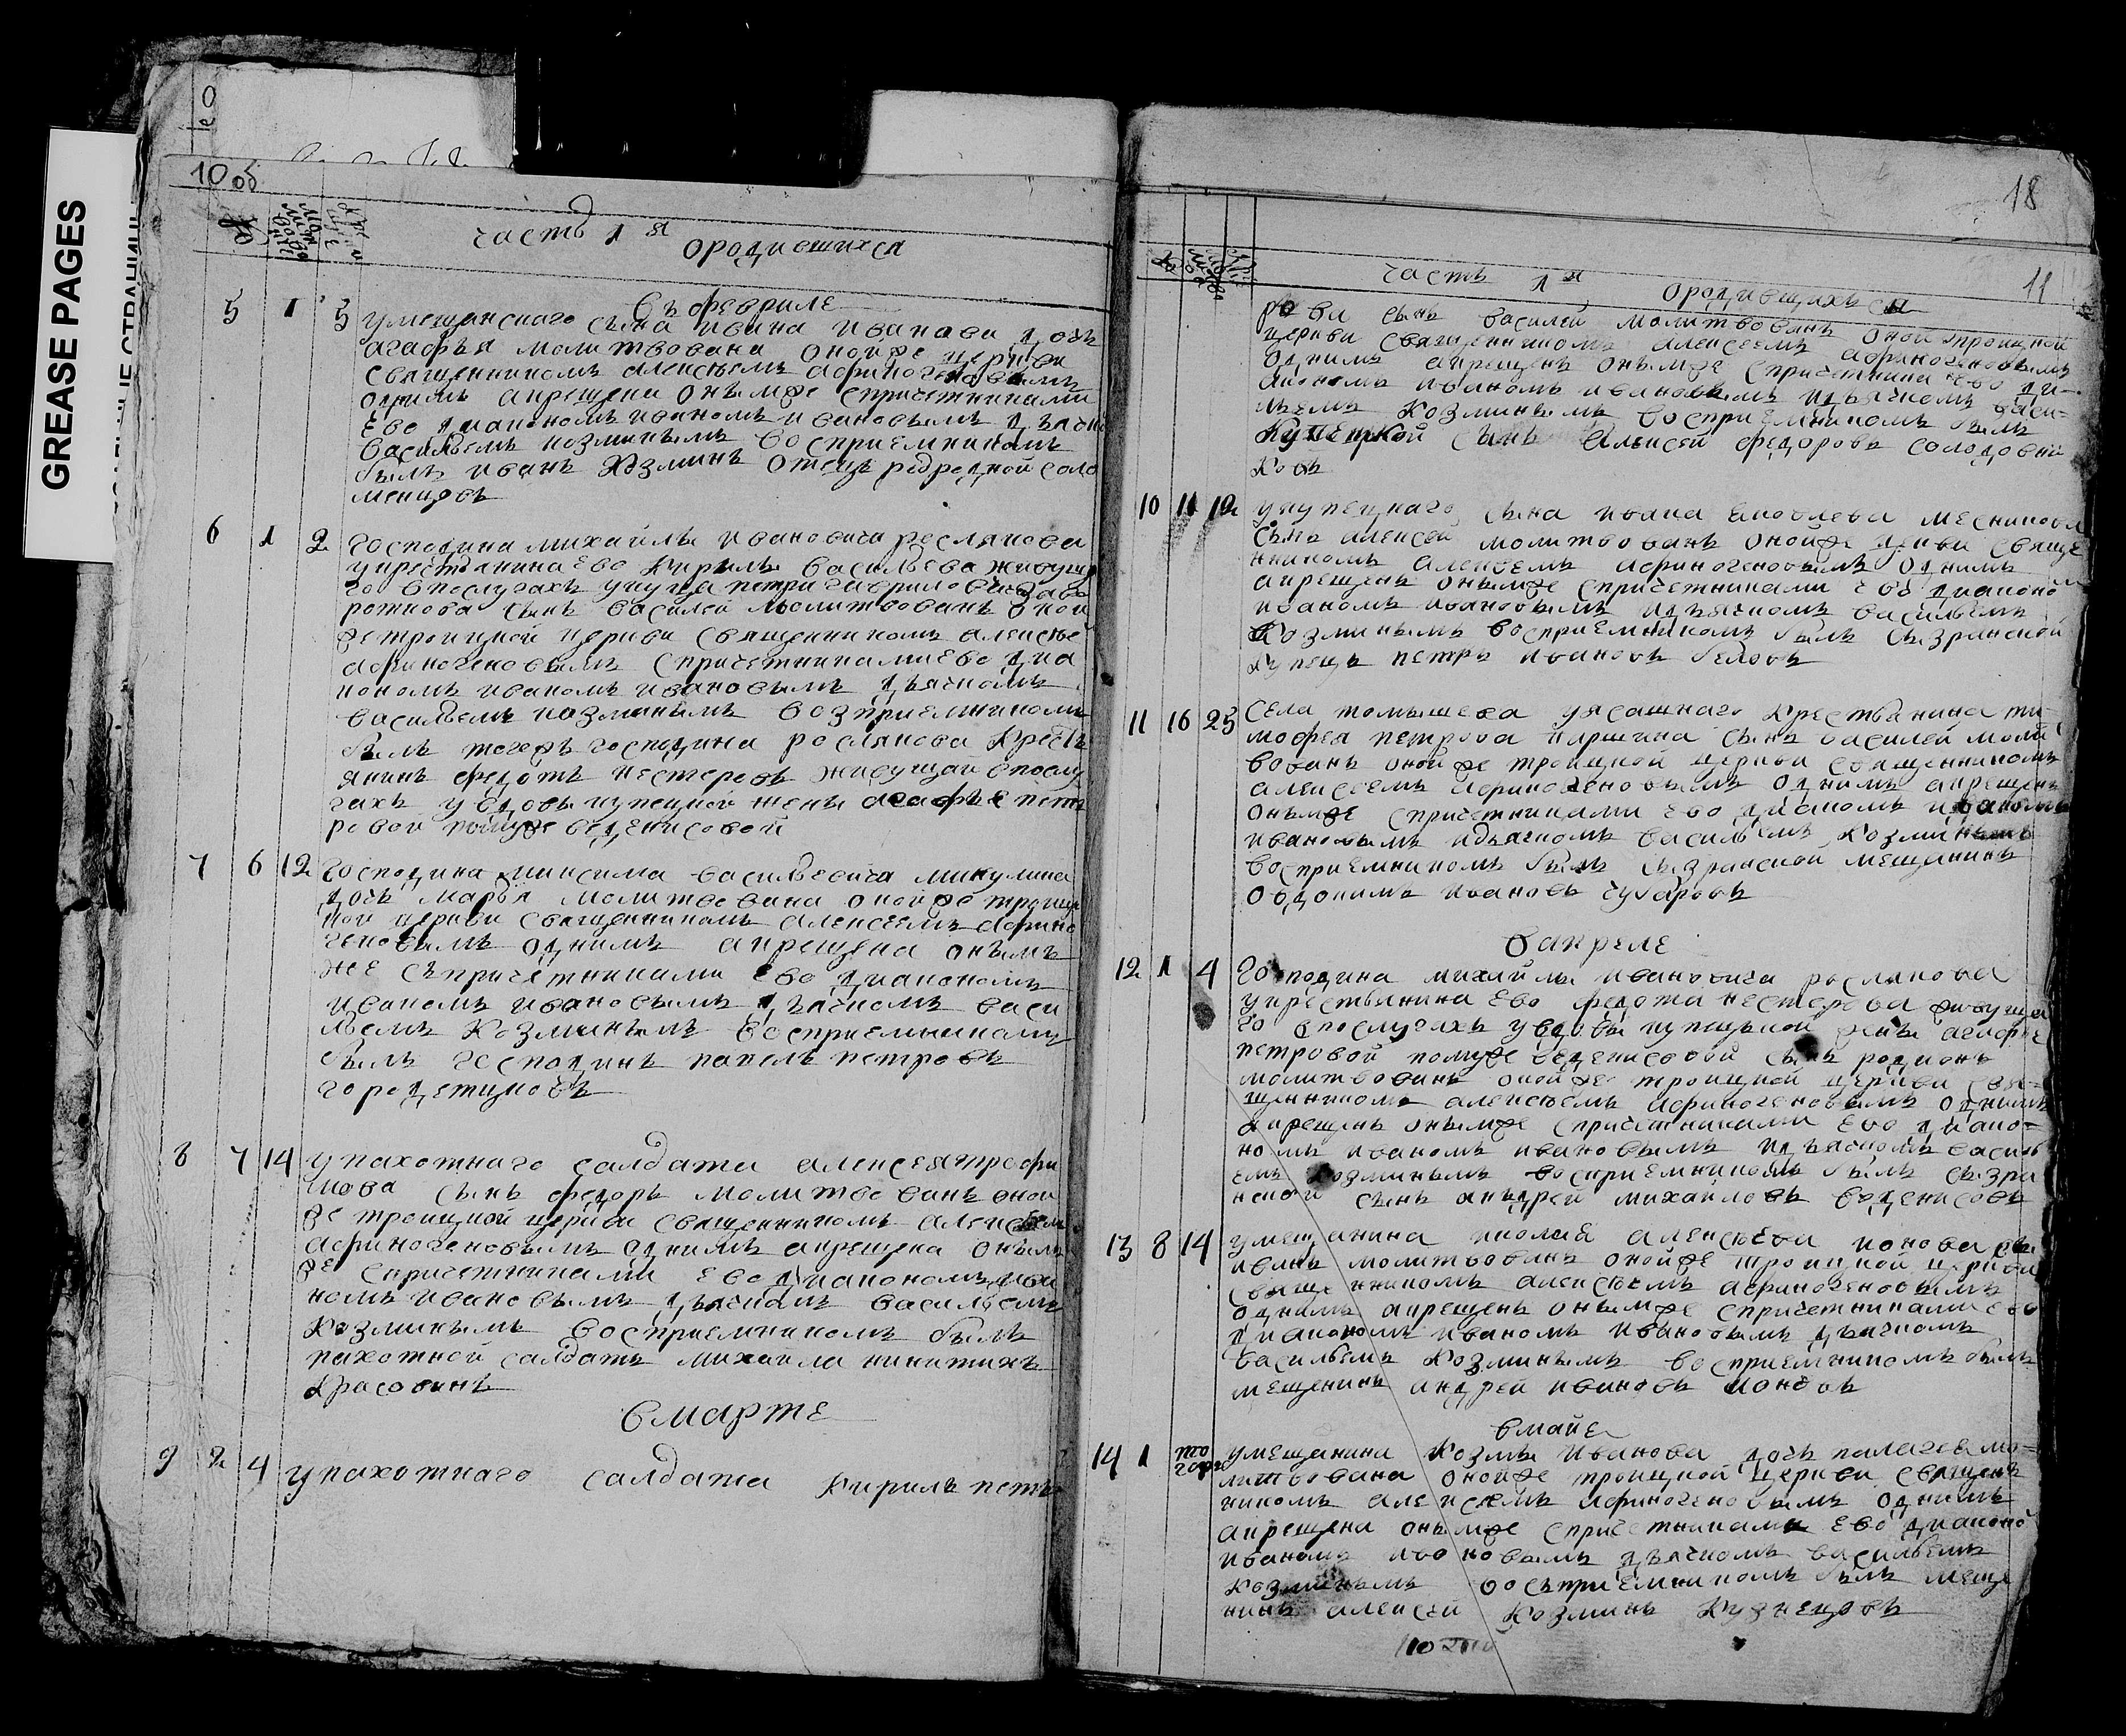 GREASE PAGES
10 об
часть 1 я
ородившихся
въ феврале
5 1 5 умещанского сына ивана иванова дочь
агафья молитвована онойже церкви
священникомъ алексеемъ афиногеновымъ
однимъ акрещена онымже спричетниками
ево диакономъ иваномъ ивановымъ дьячко
васильемъ козминымъ восприемникомъ
былъ иванъ козминъ отецъ редредной соло
менцовъ
6 1 2 господина михайлы ивановича реслякова
укрестьянина ево кирилы васильева живуще
го впослугахъ укупца петра гавриловича заво
роткова сынъ василей молитвованъ оной
же троицкой церкви священникомъ алексее
афиногеновымъ спричетникамиево диа
кономъ иваномъ ивановымъ дьячкомъ
васильемъ козминымъ возприемникомъ
былъ тогожъ господина рослякова кресть
янинъ федотъ нестеровъ живущай впослу
гахъ увдовы купецкой жены агафье пет
ровой веденисовой
7 6 12 господина максима васильевича микулина
дочь марья молитвована онойже троиц
кой церкви священникомъ алексеемъ афино
геновымъ однимъ акрещена онымъ
же съпричетниками ево диакономъ
иваномъ ивановымъ дьячкомъ васи
льемъ козминымъ восприемникомъ
былъ господинъ павелъ петровъ
городетцковъ
8 7 14 упахотнаго салдата алексеятрофи
мова сынъ федоръ молитвованъ оной
же троицкой церкви священникомъ алексеем
афиногеновымъ однимъ акрещена оным
же спричетниками ево диакономъ ива
номъ ивановымъ дьячкомъ васильемъ
козминымъ восприемникомъ былъ
пахотной салдатъ михайла никитихъ
красовинъ
вмарте
9 2 4 упахотнаго салдата кирилъ пет
18
11
часть 1 я
ородившихъ ся
рова сынъ василей молитвованъ оной троицкой
церкви священникомъ алексеемъ афиногеновымъ
однимъ акрещенъ онымже спричетника ево ди-
акономъ иваномъ ивановымъ идьячкомъ васи-
льемъ козминымъ восприемникомъ былъ
купецкой сынъ алексей федоровъ солодовни
ковъ
10 11 12 укупецкаго сына ивана яковлева месникова
сынъ алексей молитвованъ онойже церкви свяще
нникомъ алексеемъ афиногеновымъ однимъ
акрещенъ онымже спричетниками ево диаконо
иваномъ ивановымъ идьячкомъ васильемъ
козминымъ восприемникомъ былъ сызранской
купецъ петръ ивановъ беловъ
11 16 25 села томышева уясашнаго крестьянина ти-
мофея петрова паршина сынъ василей молит
вованъ онойже троицкой церкви священникомъ
алексеемъ афиногеновымъ однимъ акрещенъ
онымже спричетниками ево диакономъ иваномъ
ивановымъ идьячкомъ васильемъ козминымъ
восприемникомъ былъ сызранской мещанинъ
овдокимъ ивановъ чуваровъ
вапреле
12 1 4 господина михайлы ивановича рослякова
укрестьянина ево федота нестерова живуще
го впослугахъ увдовы купецкой жены агафье
петровой веденисовой сынъ родионъ
молитвованъ онойже троицкой церкви свя-
щенникомъ алексеемъ афиногеновымъ однимъ
акрещенъ онымже спричетниками ево диако-
номъ иваномъ ивановымъ идьячкомъ василь
емъ козминымъ восприемникомъ былъ сызра
нской сынъ андрей михайловъ веденисовъ
13 8 14 умещанина николая алексеева попова сы
иванъ молитвованъ онойже троицкой церкви
священникомъ алексеемъ афиногеновымъ
однимъ акрещенъ онымже спричетниками ево
диакономъ иваномъ ивановымъ дьячкомъ
васильемъ козминымъ восприемникомъ былъ
мещенинъ андрей ивановъ
вмайе
14 1 того умещанина козмы иванова дочь палагея мо-
литвована онойже троицкой церкви священ
никомъ алексеемъ афиногеновымъ однимъ
акрещена онымже спричетниками ево диаконо
иваномъ ивановымъ дьячкомъ васильемъ
козминымъ восъприемникомъ былъ меще
нинъ алексей козминъ кузнецовъ